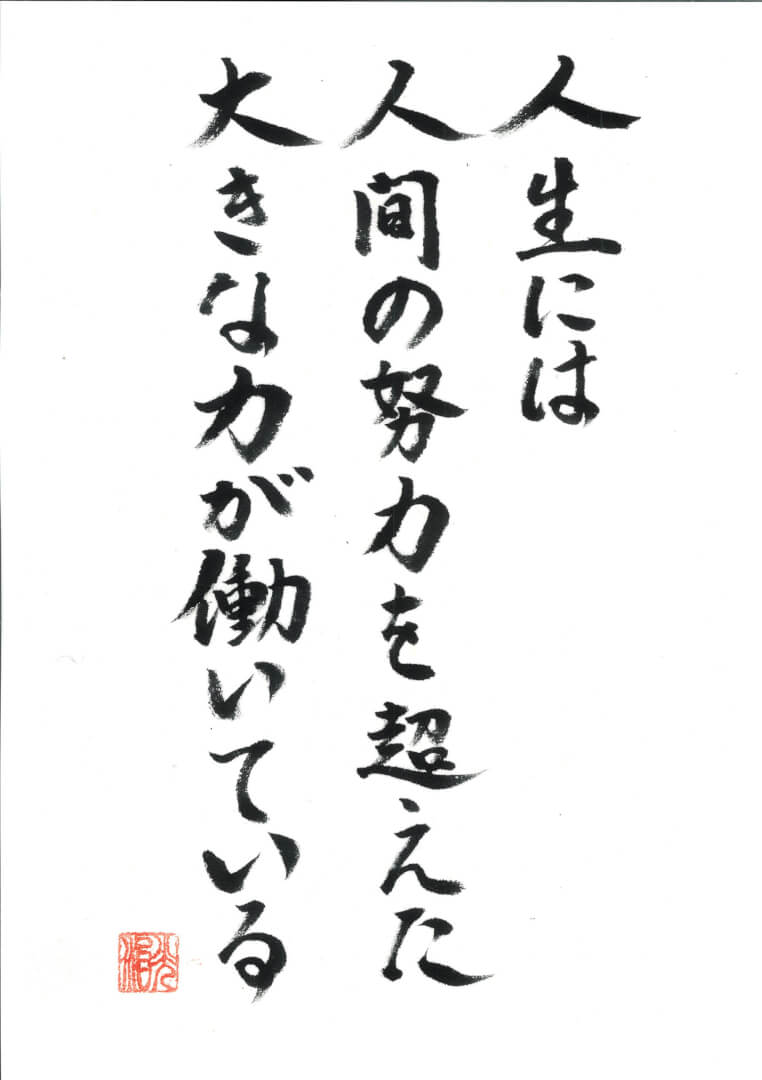 人生には
人間の努力を超えた
大きな力が働いている